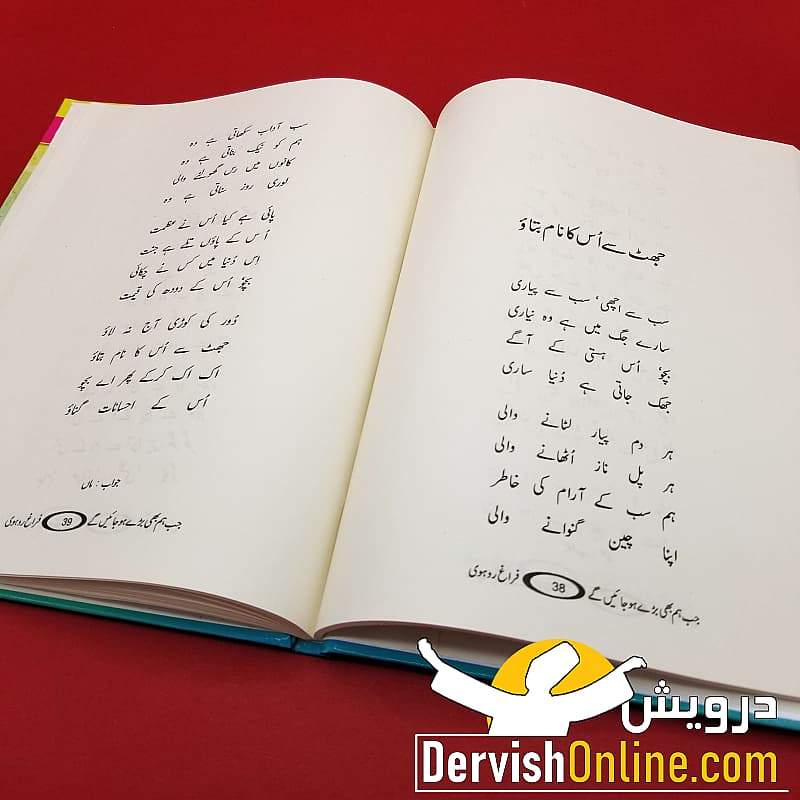 جھٹ سے اُس کا نام بتاؤ
سب سے اچھی، سب سے پیاری
سارے جگ میں ہے وہ نیاری
بچّو! اُس ہستی کے آگے
جھک جاتی ہے دُنیا ساری
ہر دم پیار لٹانے والی
ہر پل ناز اُٹھانے والی
ہم سب کے آرام کی خاطر
اپنا چین گنوانے والی
جب ہم بھی بڑے ہو جائیں گے 38 فراغ روہوی
سب آداب سکھاتی ہے وہ
ہم کو نیک بناتی ہے وہ
کانوں میں رس گھولنے والی
لوری روز سناتی ہے وہ
پائی ہے کیا اُس نے عظمت
اُس کے پاؤں تلے ہے جنت
اِس دُنیا میں کس نے چکائی
بچّو! اُس کے دودھ کی قیمت
دُور کی کوڑی آج نہ لاؤ
جھٹ سے اُس کا نام بتاؤ
اک اک کرکے پھر اے بچو
اُس کے احسانات گناؤ
جواب : ماں
جب ہم بھی بڑے ہو جائیں گے 39 فراغ روہوی
درویش
DervishOnline.com